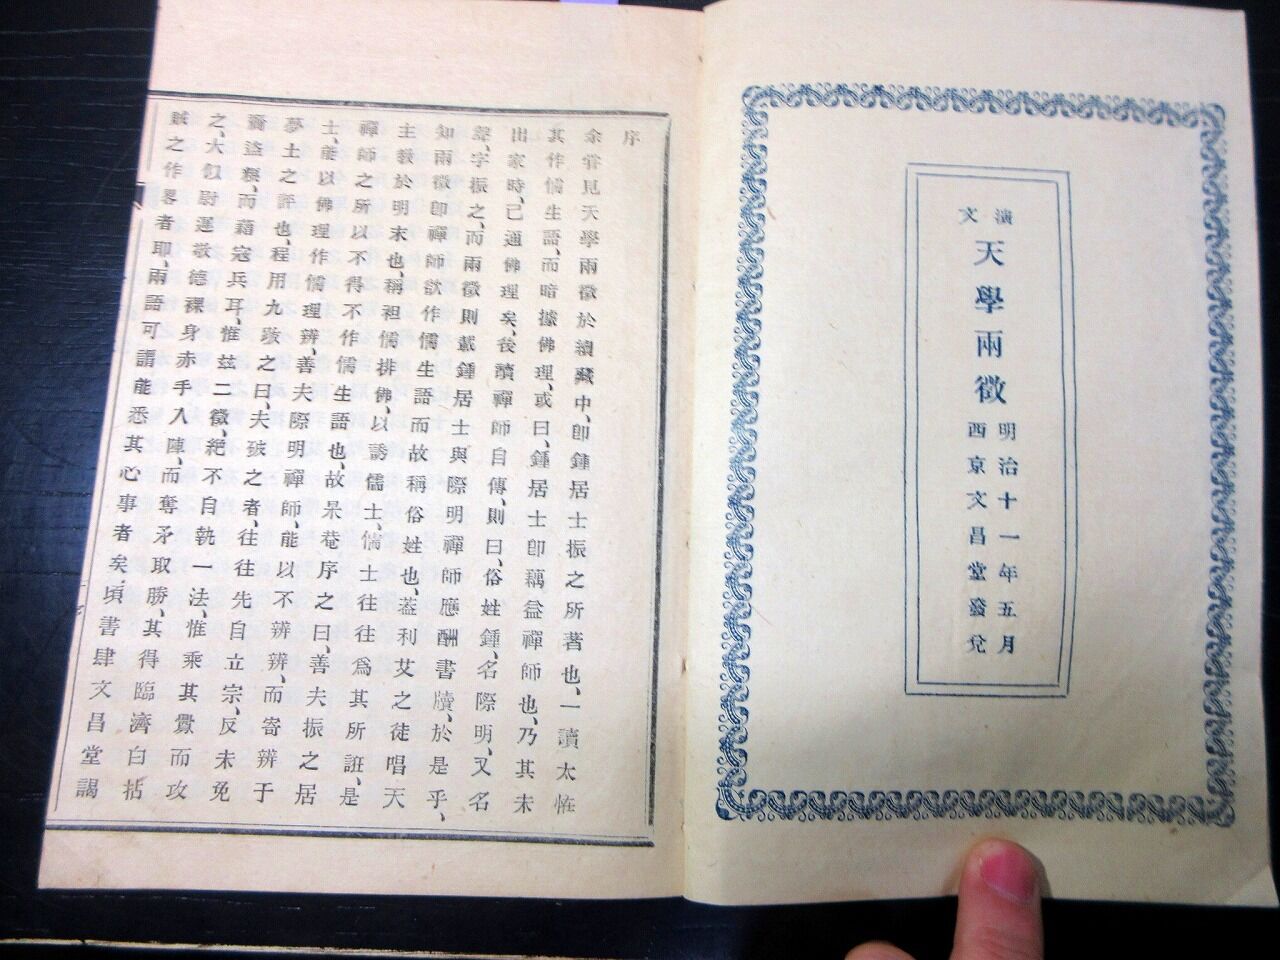 漢文
天學兩徴
明治十一年五月
西京文昌堂發兌
序
余甞見天學兩徴於續藏中、卽鍾居士振之所著也、一讀太恠
其作儒生語、而暗據佛理、或曰、鍾居士卽藕益禪師也、乃其未
出家時、已通佛理矣、後讀禪師自傳、則曰、俗姓鍾、名際明、又名
聲、字振之、而兩徴則載鍾居士與際明禪師應酬書牘、於是乎、
知兩徴卽禪師欲作儒生語而故稱俗姓也、葢利艾之徒唱天
主敎於明末也、稱袒儒排佛、以誘儒士、儒士往往爲其所誑、是
禪師之所以不得不作儒生語也、故杲菴序之曰、善夫振之居
士、能以佛理作儒理辨、善夫際明禪師、能以不辨辨、而寄辨于
夢士之評也、程用九跋之曰、夫破之者、往往先自立宗、反未免
齎盜粮、而藉寇兵耳、惟玆二徴、絶不自執一法、惟乘其釁而攻
之、大似尉遲敬德裸身赤手入陣、而奪矛取勝、其得臨濟白拈
賊之作畧者耶、兩語可謂能悉其心事者矣、頃書肆文昌堂謁